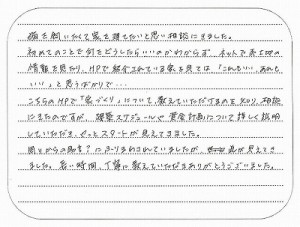 猫を飼いたくて家を建てたいと思い相談にきました。
初めてのことで何をどうしたらいいのかわからず、ネットで
情報を見たり、HPで紹介されている家を見ては「これもいい、あれも
いい」と思うばかりで…
こちらのHPで「家づくり」について、教えていただけるのを知り、相談
にきたのですが、建築スケジュールや資金計画について詳しく説明
していただき、やっとスタートが見えてきました。
周りからの助言？にふりまわされていましたが、光が見えてき
ました。長い時間、丁寧に教えていただきありがとうございました。